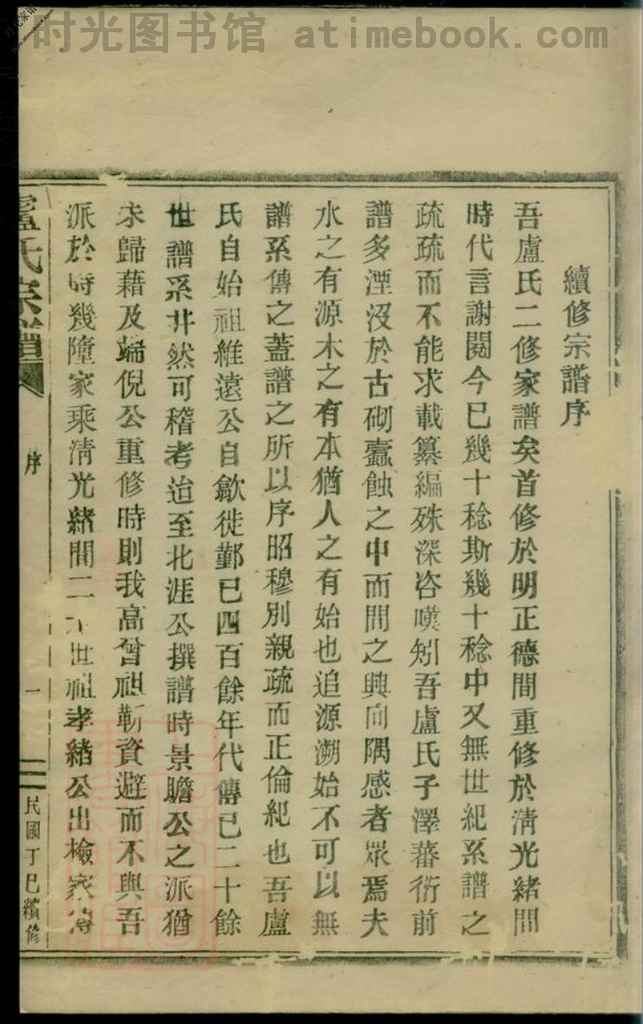 时光图书馆 atimebook.com
續修宗譜序
吾盧氏二修家譜矣首修於明正德間重修於清光緒間
時代言謝閱今已幾十稔斯幾十稔中又無世紀系譜之
疏疏而不能求載纂編殊深咨嘆矧吾盧氏子澤蕃衍前
譜多湮沒於古砌蠹蝕之中而間之興向隅感者眾焉夫
水之有源木之有本猶人之有始也追源溯始不可以無
譜系傳之蓋譜之所以序昭穆別親疏而正倫紀也吾盧
氏自始祖維遠公自歙徙鄞已四百餘年代傳已二十餘
世譜系井然可稽考迨至北涯公撰譜時景瞻公之派猶
未歸藉及端倪公重修時則我高曾祖靳資避而不與吾
派於時幾墮家乘清光緒間二世祖孝緒公出檢家
盧氏宗譜
序
一
民國丁巳續修